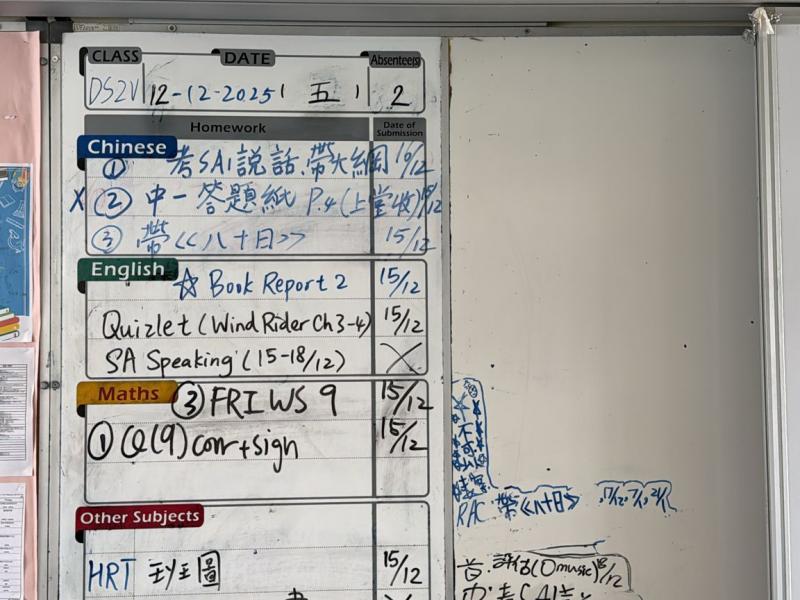 CLASS DATE Absentee(s)
DS2V 12-12-2025 ( 五 ) 2
Homework Date of Submission
Chinese
① 考SA1說話.帶大綱 16/12
X ② 中一答題紙 P.4 (上堂收) 12
③ 帶《八十日》 15/12
English
☆ Book Report 2 15/12
Quizlet (Wind Rider Ch 3-4) 15/12
SA Speaking (15-18/12) X
Maths
③ FRI WS 9 15/12
① Q(9) corr + sign 15/12
Other Subjects
HRT 圖 15/12
不可
RAC 帶《八十日》
音: 評估 ( music) /12